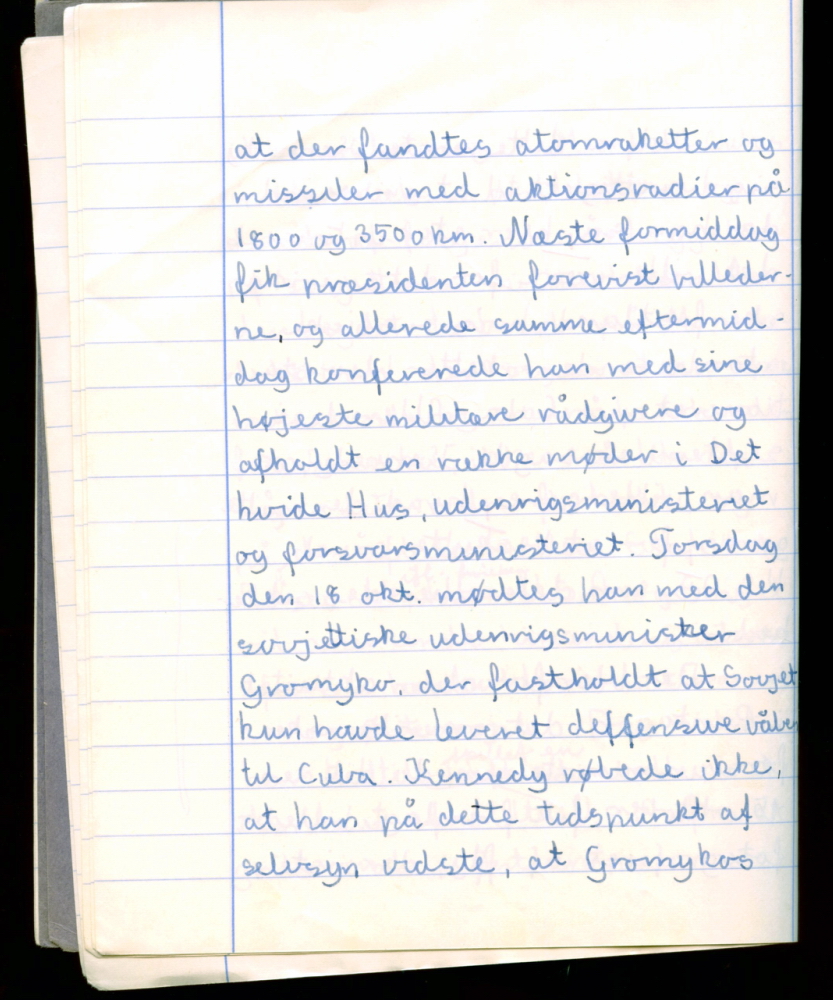 at der fandtes atomraketter og
missiler med aktionsradier på
1800 og 3500 km. Næste formiddag
fik præsidenten forevist billeder-
ne, og allerede samme eftermid-
dag konfererede han med sine
højeste militære rådgivere og
afholdt en række møder i Det
hvide Hus, udenrigsministeriet
og forsvarsministeriet. Torsdag
den 18 okt. mødtes han med den
sovjettiske udenrigsminister
Gromyko, der fastholdt at Sovjet
kun havde leveret deffensive våben
til Cuba. Kennedy røbede ikke,
at han på dette tidspunkt af
selvsyn vidste, at Gromykos